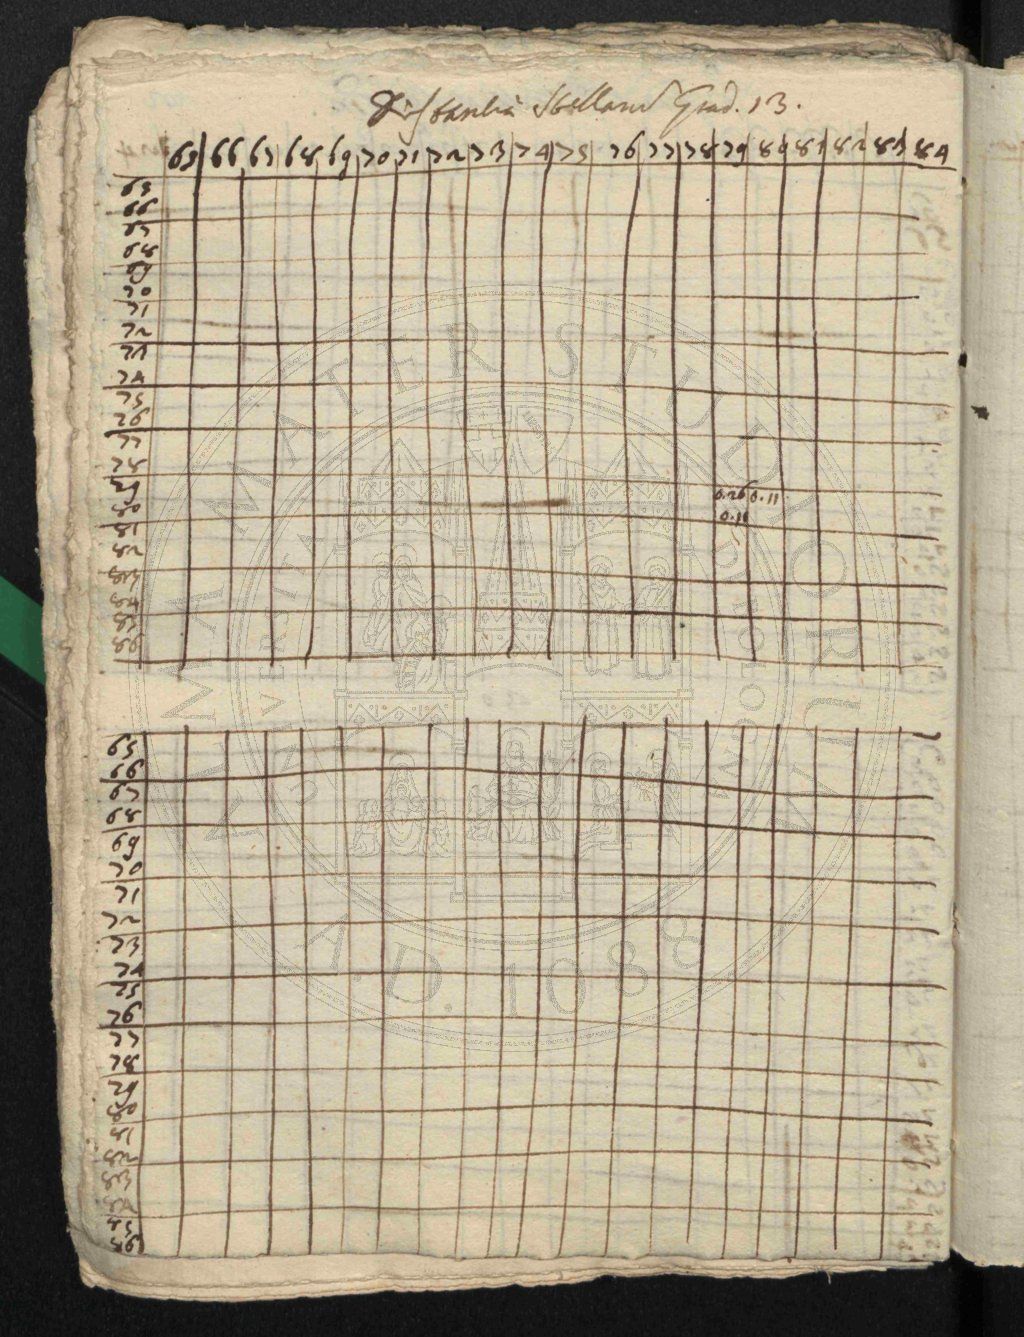 Distantia Stellarum Grad. 13.
65 66 67 68 69 70 71 72 73 74 75 76 77 78 79 80 81 82 83 84
65
66
67
68
69
70
71
72
73
74
75
76
77
78
79 0.26 0.11
80 0.11
81
82
83
84
85
86
65
66
67
68
69
70
71
72
73
74
75
76
77
78
79
80
81
82
83
84
85
86
ALMA MATER STUDIORUM
A.D. 1088
UNIVERSITA DI BOLOGNA